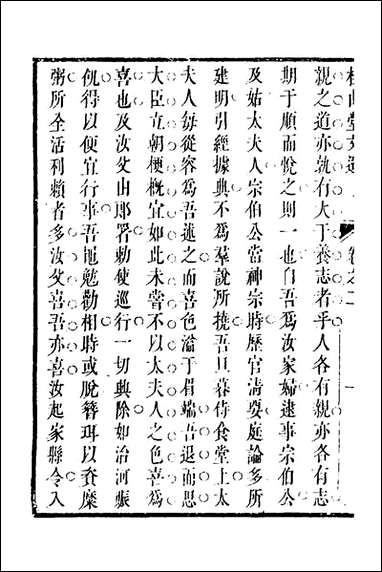 親之道亦孰有大于養志者乎人各有親亦各有志
期于順而悅之則一也自吾爲汝家婦逮事宗伯公
及姑太夫人宗伯公當神宗時歷官淸要庭論多所
建明引經據典不爲羣說所撓吾旦暮侍食堂上太
夫人每從容爲吾述之而喜色溢于眉端吾退而思
大臣立朝梗槪宜如此未嘗不以太夫人之色喜爲
喜也及汝父由郞署勅使巡行一切興除如治河賑
饑得以便宜行事吾黽勉勸相時或脫簪珥以資糜
粥所全活利賴者多汝父喜吾亦喜汝起家縣令入